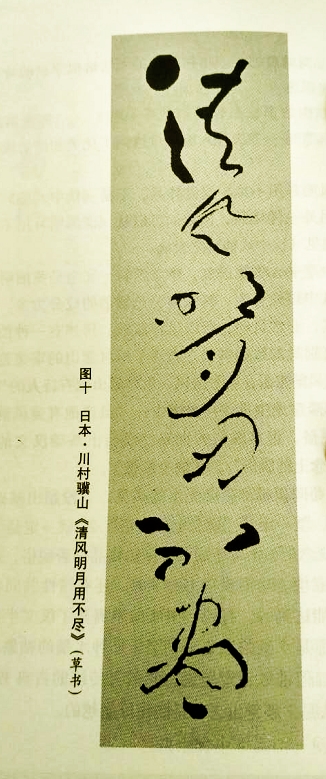 清风明月用不尽
图十 日本·川村骥山《清风明月用不尽》（草书）